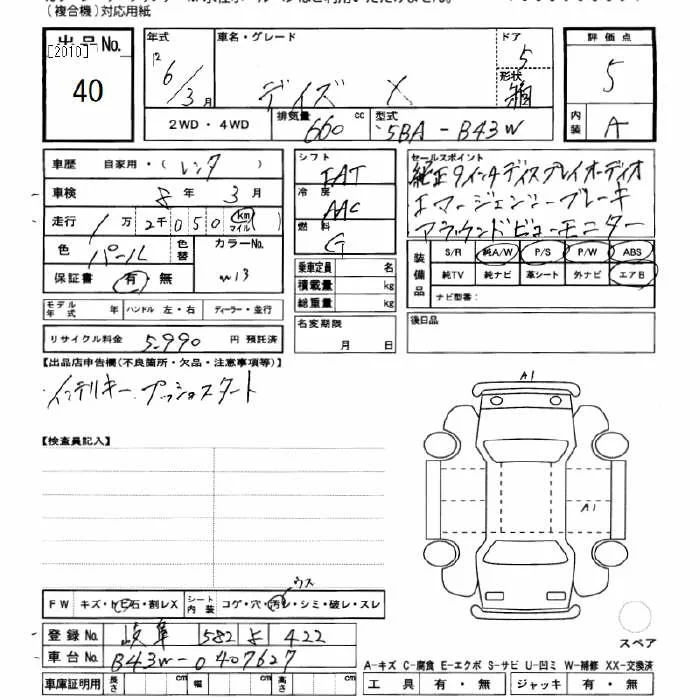 (複合機)対応用紙
出品No.
[2010]
40
年式
12
6/3月
車名・グレード
デイズ X
ドア
5
形状
箱
評価点
5
内装
A
2WD・4WD
排気量
660 cc
型式
5BA-B43W
車歴 自家用・(レンタ)
車検 8年 3月
走行 1万 2千 0 5 0 km マイル ( )
色 パール
色替
カラーNo.
W13
保証書 有・無
モデル年式 年
ハンドル 左・右
ディーラー・並行
リサイクル料金 5,990 円 預託済
シフト
IAT
冷房
AAC
燃料
G
乗車定員 名
積載量 kg
総重量 kg
名変期限
月 日
セールスポイント
純正9インチディスプレイオーディオ
エマージェンシーブレーキ
アラウンドビューモニター
装備品
S/R 純A/W P/S P/W ABS
純TV 純ナビ 革シート 外ナビ エアB
ナビ型番:
後日品
【出品店申告欄(不良箇所・欠品・注意事項等)】
・インテリキー プッシュスタート
【検査員記入】
A1
A1
ウス
FW キズ・ヒ石・割レX
シート内装 コゲ・穴・汚レ・シミ・破レ・スレ
登録No. 岐阜 582 よ 422
車台No. B43W-0407627
車庫証明用 長さ cm 幅 cm 高さ cm
スペア
A-キズ C-腐食 E-エクボ S-サビ U-凹ミ W-補修 XX-交換済
工具 有・無 ジャッキ 有・無